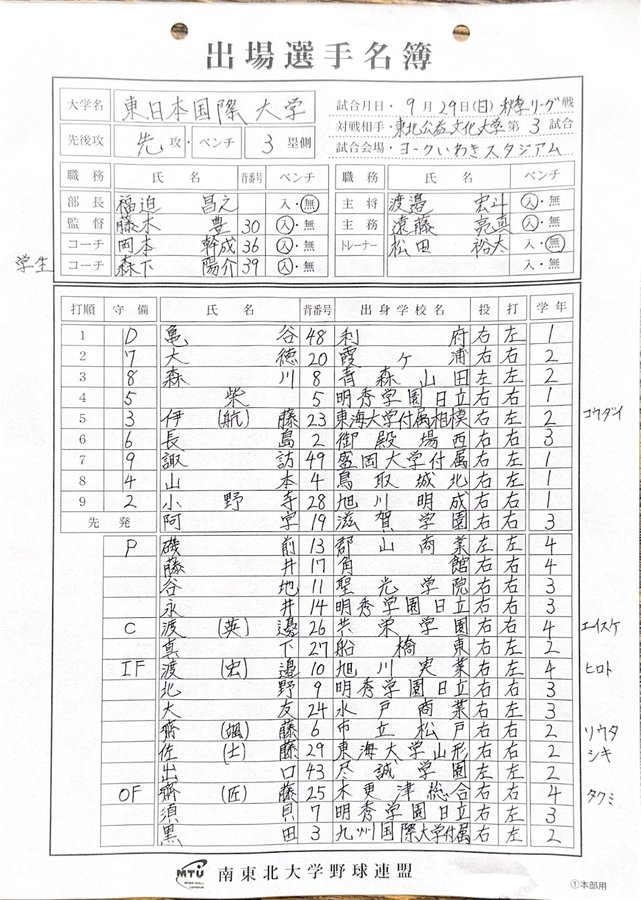 出場選手名簿
大学名 東日本国際大学 試合月日・9月29日(日)秋季リーグ戦
対戦相手・東北公益文化大学第3試合
先後攻 先攻・ベンチ 3塁側 試合会場・ヨークいわきスタジアム
職務 氏名 背番号 ベンチ 職務 氏名 ベンチ
部長 福迫 昌之 入・無 主将 渡邉 宏斗 入・無
監督 藤木 豊 30 入・無 主務 遠藤 亮真 入・無
コーチ 岡本 幹成 36 入・無 トレーナー 松田 裕太 入・無
学生 コーチ 森下 陽介 39 入・無 入・無
打順 守備 氏名 背番号 出身学校名 投 打 学年
1 D 亀谷 48 利府 右 左 1
2 7 大徳 20 霞ヶ浦 右 右 2
3 8 森川 8 青森山田 左 左 2
4 5 柴 5 明秀学園日立 右 右 1
5 3 伊(航)藤 23 東海大学付属相模 右 左 2 コウダイ
6 6 長島 2 御殿場西 右 右 3
7 9 諏訪 49 盛岡大学付属 右 左 1
8 4 山本 4 鳥取城北 右 左 1
9 2 小野寺 28 旭川明成 右 右 1
先発 阿字 19 滋賀学園 右 右 3
P 磯前 13 郡山商業 左 左 4
藤井 17 角館 右 右 4
谷地 11 聖光学院 右 右 3
永井 14 明秀学園日立 右 右 3
C 渡(英)邉 26 共栄学園 右 右 4 エイスケ
真下 27 船橋東 右 左 2
IF 渡(宏)邉 10 旭川実業 右 左 4 ヒロト
北野 9 明秀学園日立 右 右 3
大友 24 水戸商業 右 左 3
齋(颯)藤 6 市立松戸 右 右 2 ソウタ
佐(士)藤 29 東海大学山形 右 右 2 シキ
出口 43 尽誠学園 左 左 2
OF 齋(匠)藤 25 木更津総合 右 右 4 タクミ
須貝 7 明秀学園日立 右 左 3
黒田 3 九州国際大学付属 右 左 2
MTU 南東北大学野球連盟
①本部用